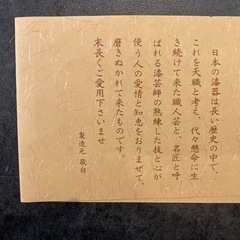 日本の漆器は長い歴史の中で、
これを天職と考え、代々懸命に生
き続けて来た職人芸と、名匠と呼
ばれる漆芸師の熟練した技と心が
使う人の愛情と知恵をおりまぜて、
磨きぬかれて来たものです。
末長くご愛用下さいませ
製造元 敬白